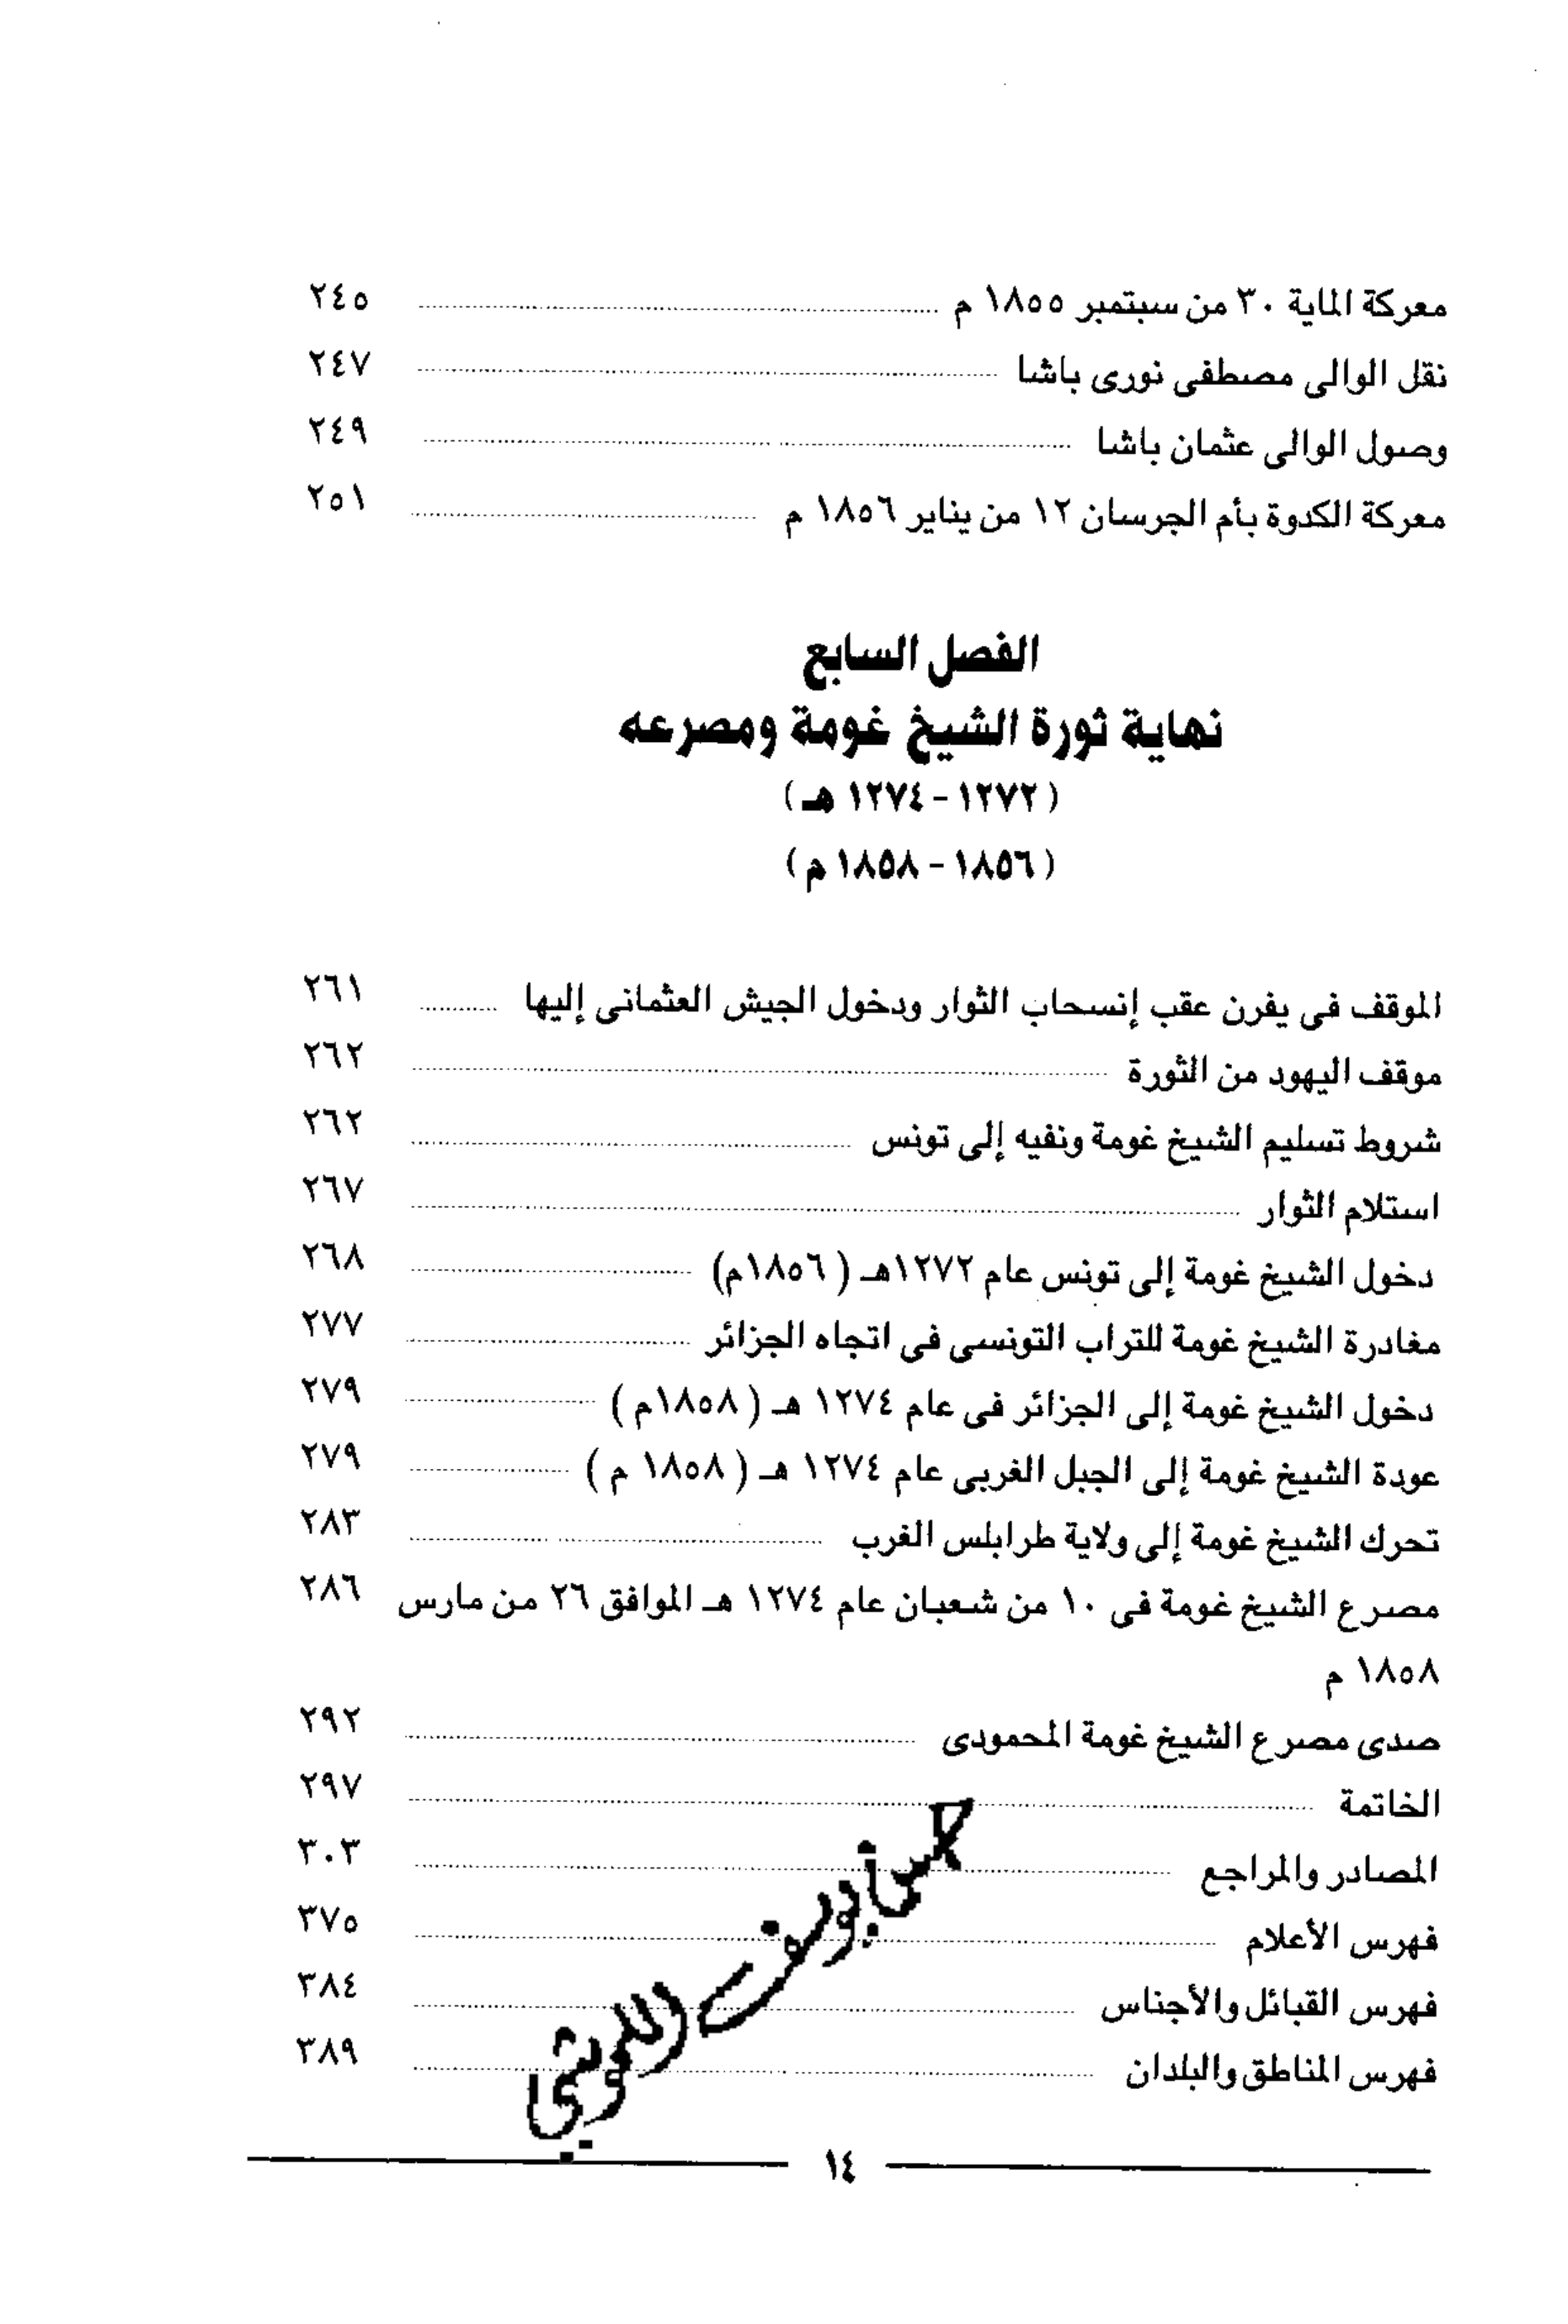 معركة الماية ٣٠ من سبتمبر ١٨٥٥ م ٢٤٥
نقل الوالى مصطفى نورى باشا ٢٤٧
وصول الوالى عثمان باشا ٢٤٩
معركة الكدوة بأم الجرسان ١٢ من يناير ١٨٥٦ م ٢٥١
الفصل السابع
نهاية ثورة الشيخ غومة ومصرعه
( ١٢٧٢ - ١٢٧٤ هـ )
( ١٨٥٦ - ١٨٥٨ م )
الموقف فى يفرن عقب إنسحاب الثوار ودخول الجيش العثمانى إليها ٢٦١
موقف اليهود من الثورة ٢٦٢
شروط تسليم الشيخ غومة ونفيه إلى تونس ٢٦٢
استلام الثوار ٢٦٧
دخول الشيخ غومة إلى تونس عام ١٢٧٢هـ ( ١٨٥٦م) ٢٦٨
مغادرة الشيخ غومة للتراب التونسى فى اتجاه الجزائر ٢٧٧
دخول الشيخ غومة إلى الجزائر فى عام ١٢٧٤ هـ ( ١٨٥٨م ) ٢٧٩
عودة الشيخ غومة إلى الجبل الغربى عام ١٢٧٤ هـ ( ١٨٥٨ م ) ٢٧٩
تحرك الشيخ غومة إلى ولاية طرابلس الغرب ٢٨٣
مصرع الشيخ غومة فى ١٠ من شعبان عام ١٢٧٤ هـ الموافق ٢٦ من مارس ٢٨٦
١٨٥٨ م
صدى مصرع الشيخ غومة المحمودى ٢٩٢
الخاتمة ٢٩٧
المصادر والمراجع ٣٠٣
فهرس الأعلام ٣٧٥
فهرس القبائل والأجناس ٣٨٤
فهرس المناطق والبلدان ٣٨٩
١٤